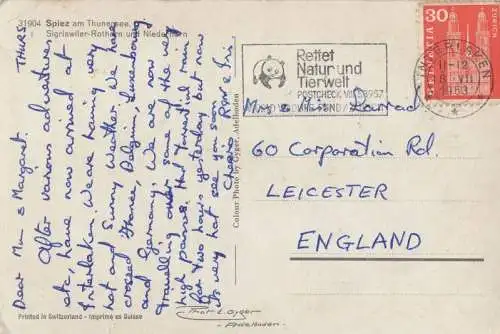 31904 Spiez am Thunersee
Sigriswiler-Rothorn und Niederhorn
THURS.
Dear Mum & Margaret.
After various adventures
etc, have now arrived at
Interlaken. We are having very
hot and sunny weather. We have
crossed France, Belgium, Luxembourg
and Germany. We are now
travelling over some of the very
high passes. Had torrential rain
for two hours yesterday but now
its very hot. see you soon.
Cheers
Printed in Switzerland - Imprimé en Suisse
Colour Photo by Gyger, Adelboden
Phot. E. Gyger
Adelboden
Rettet
Natur und
Tierwelt
POSTCHECK VIII 58957
WORLD WILDLIFE FUND
INTERLAKEN
11-12
8. VII
1963
30
HELVETIA
ZÜRICH
Mrs &
60 Corporation Rd.
LEICESTER
ENGLAND